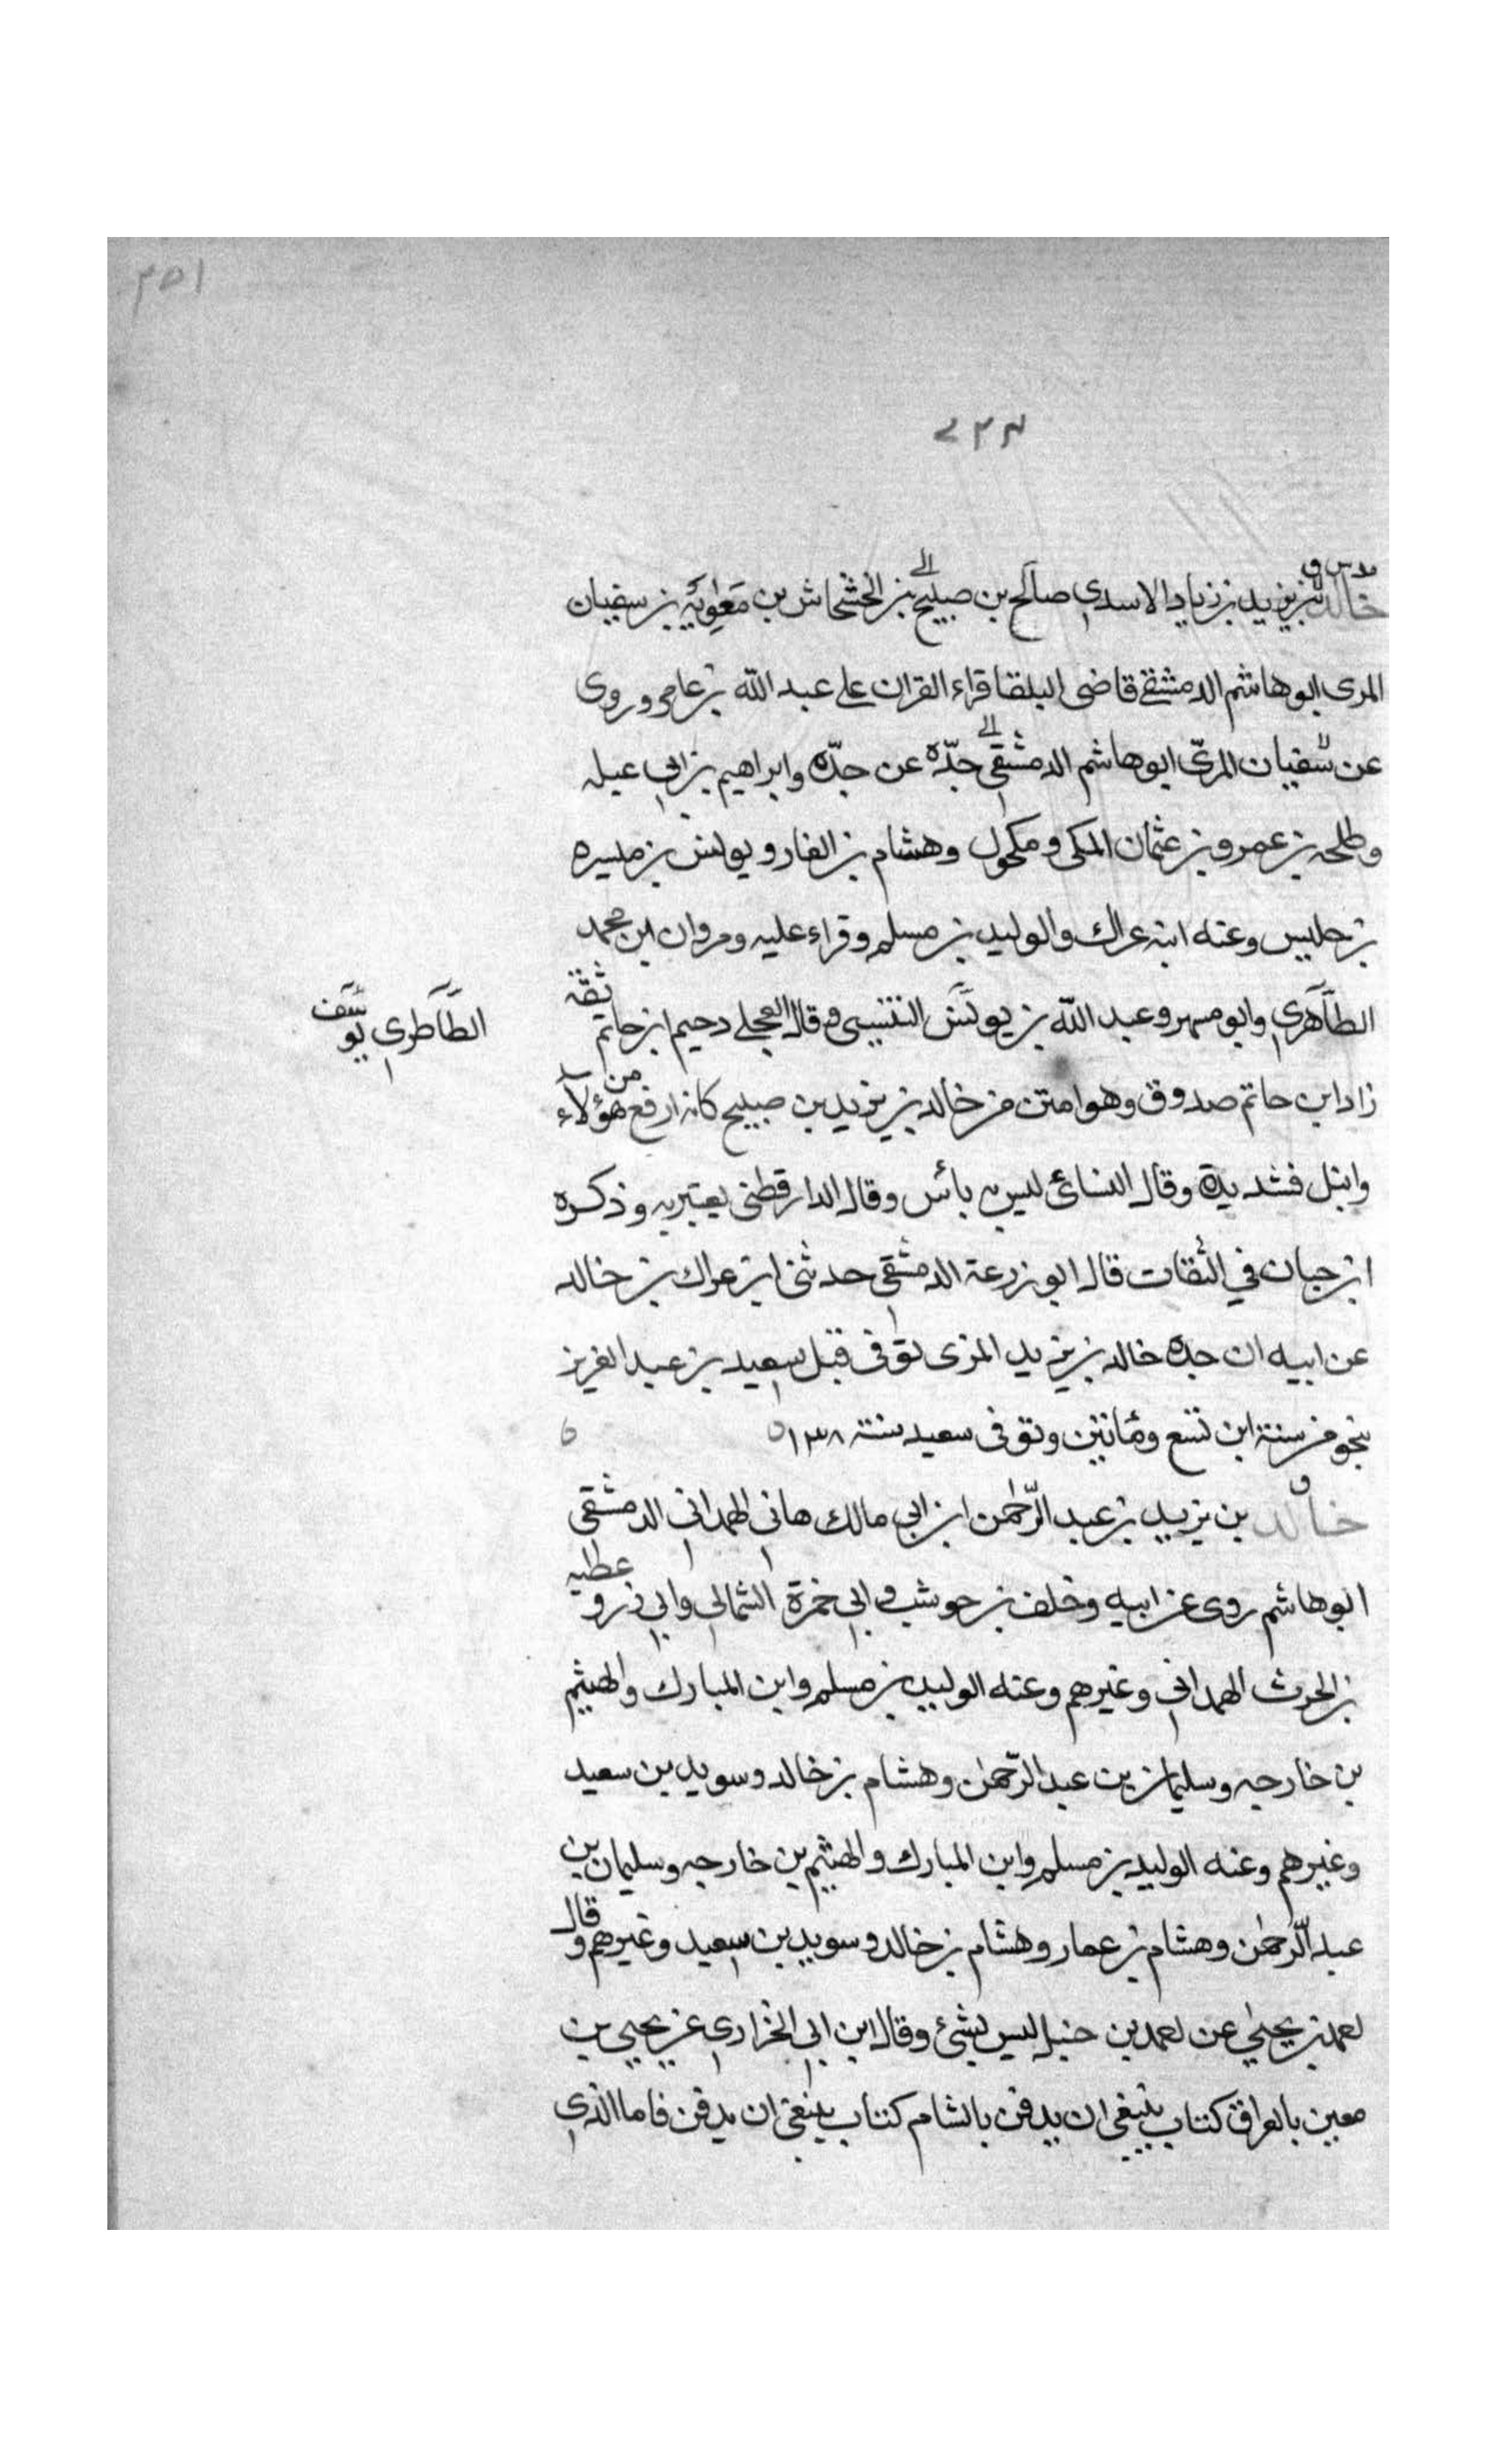 ٣٥١
٢٣٣
مد س ق
خالد بن يزيد بن زياد الاسدي صالح بن صبيح بن الخشخاش بن معٰوية بن سفيان
المرى ابو هاشم الدمشقى قاضى البلقا قراء القران على عبد الله بن عامر وروى
عن سفيان المرّى ابو هاشم الدمشقى جدّه عن جدّه وابراهيم بن ابى عبله
وطلحه بن عمرو بن عثمان المكى ومكحول وهشام بن الغار ويونس بن ميسره
بن حلبس وعنه ابنه عراك والوليد بن مسلم وقراء عليه ومروان ابن محمد
الطاهري وابو مسهر وعبد الله بن يونس التنيسى وقال العجلى دحيم ابن حاتم ثقة
الطاطرى يوسف
زاد ابن حاتم صدوق وهو امتن من خالد بن يزيد بن صبيح كان ارفع من هؤلاء
وانبل فشديدة وقال النسائى ليس به بأس وقال الدارقطنى يعتبر به وذكره
ابن حبان في الثقات قال ابو زرعة الدمشقى حدثنى ابن عراك بن خالد
عن ابيه ان جده خالد بن يزيد المزى توفى قبل سعيد بن عبد العزيز
بنحو من سنة ابن تسع وثمانين وتوفى سعيد سنة ١٣٨
ق
خالد بن يزيد بن عبد الرّحمٰن ابن ابي مالك هانى الهمدانى الدمشقى
ابو هاشم روى عن ابيه وخلف بن حوشب وابى حمزة الثمالى وابى ذرو عطيه
بن الحرث الهمدانى وغيرهم وعنه الوليد بن مسلم وابن المبارك والهيثم
بن خارجه وسليمان بن عبد الرّحمٰن وهشام بن خالد وسويد بن سعيد
وغيرهم وعنه الوليد بن مسلم وابن المبارك والهيثم بن خارجه وسليمان بن
عبد الرّحمٰن وهشام بن عمار وهشام بن خالد وسويد بن سعيد وغيرهم وقال
احمد بن يحيىٰ عن احمد بن حنبل ليس بشئ وقال ابن ابى الخزارى عن يحيى بن
معين بالعراق كتاب ينبغى ان يدفن بالشام كتاب ينبغى ان يدفن فاما الذى